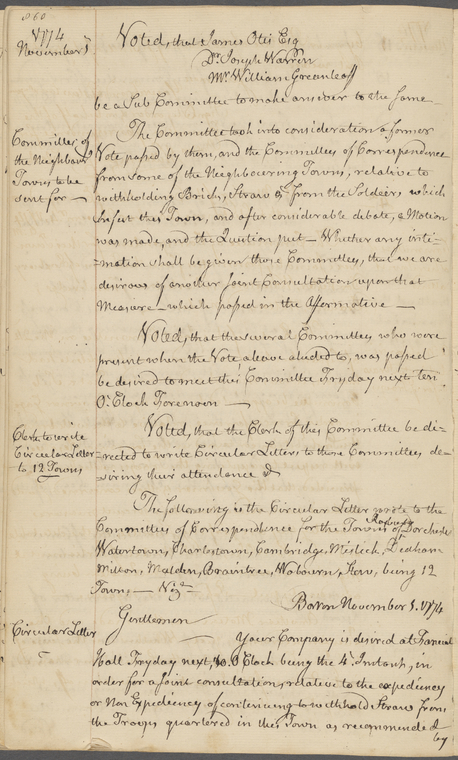 860
1774
November 1
Voted, that James Otis Esq
Dr. Joseph Warren
Mr. William Greenleaf
be a Sub Committee to make answer to the same
Committee of
the Neighbour
Towns to be
sent for
The Committee took into consideration a former
Vote passed by them, and the Committees of Correspondence
from some of the Neighbouring Towns, relative to
withholding Bricks, Straw &c. from the Soldiers, which
Infest this Town, and after considerable debate, a Motion
was made, and the Question put Whether any inti=
mation shall be given those Committees, that we are
desirous of another Joint Consultation upon that
Measure which passed in the Affirmative
Voted, that the several Committees who were
present when the Vote above aluded to, was passed
be desired to meet this Committee Fryday next ten
O'Clock Forenoon
Clerk to write
Circular Letter
to 12 Towns
Voted, that the Clerk of this Committee be di=
rected to write Circular Letters to those Committees, de=
siring their attendance &
The following is the Circular Letter wrote to the
Committees of Correspondence for the Towns of Roxbury Dorchester
Watertown, Charlestown, Cambridge, Mistick, Dedham
Milton, Malden, Braintree, Wobourn, Lyn, being 12
Towns Vizt
Boston November 1. 1774
Circular Letter
Gentlemen
Your Company is desired at Faneuil
Hall Fryday next, 10. O Clock being the 4 Instant, in
order for a Joint consultation, relative to the expediency
or Non Expediency of continuing to withhold Straw from
the Troops quartered in this Town as recommended
by